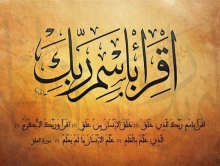 اقرأ باسم ربك
اقرأ باسم ربك الذي خلق خلق الإنسان من علق اقرأ وربك الأكرم
الذي علم بالقلم علم الإنسان ما لم يعلم